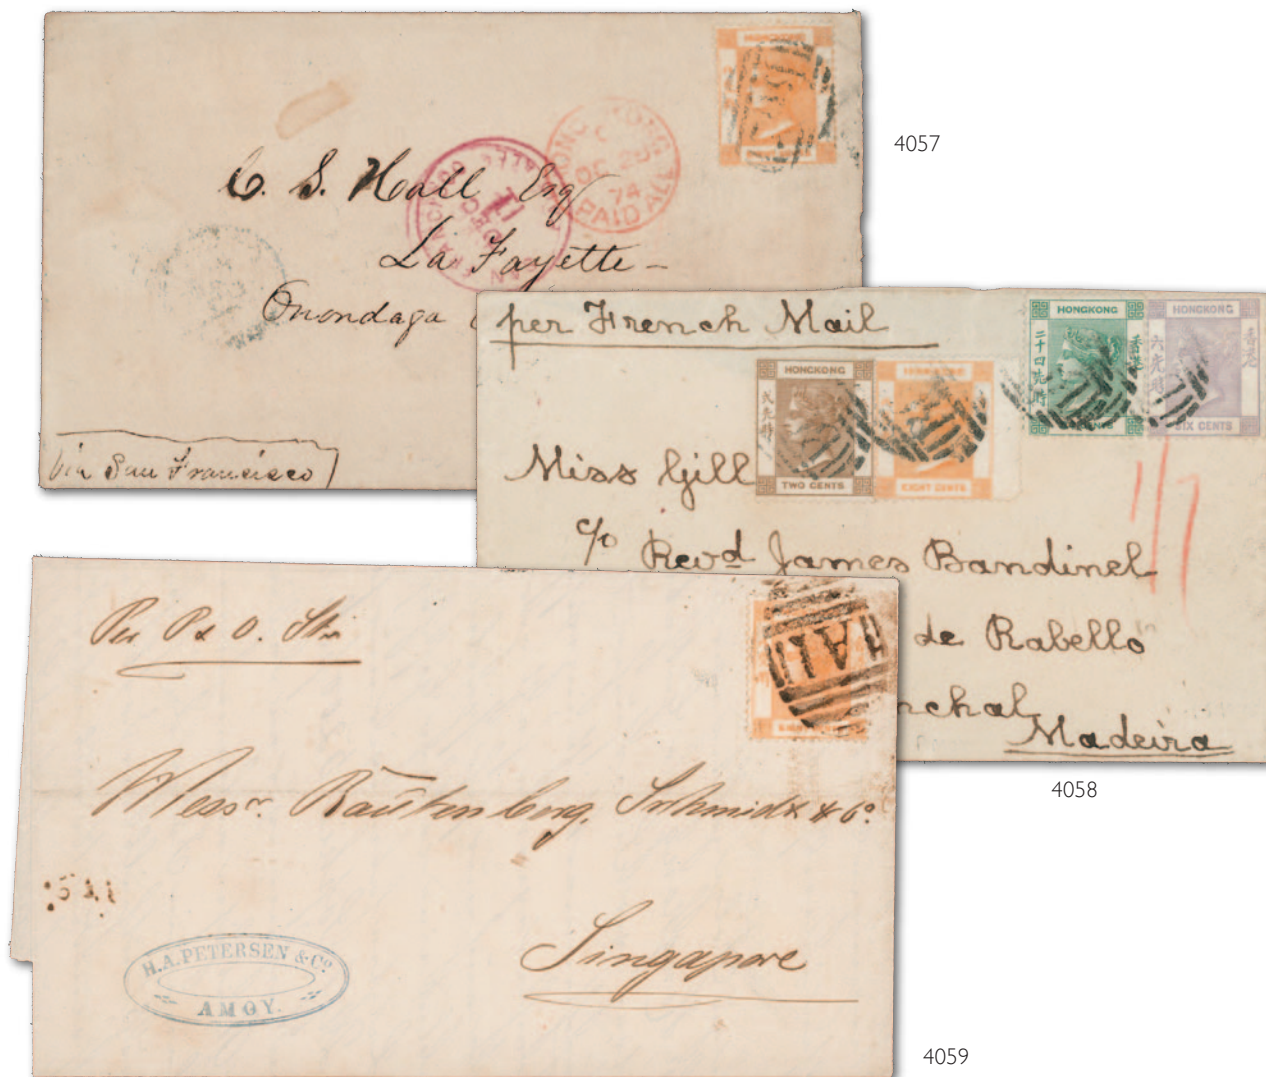 HONGKONG
4057
HONG KONG
OC 28
74
PAID ALL
SAN
DEC
11
ALL
C. S. Hall Esq
La Fayette —
Onondaga
via San Francisco
per French Mail
HONGKONG
二十四先時
香港
HONGKONG
六先時
香港
SIX CENTS
HONGKONG
TWO CENTS
EIGHT CENTS
1/7
Miss Gill
c/o Revd James Bandinel
de Rabello
nchal
Madeira
4058
Per P & O. Str
A1
Messr. Rautenberg, Schmidt & Co.
Singapore
H. A. PETERSEN & Co.
AMOY.
4059